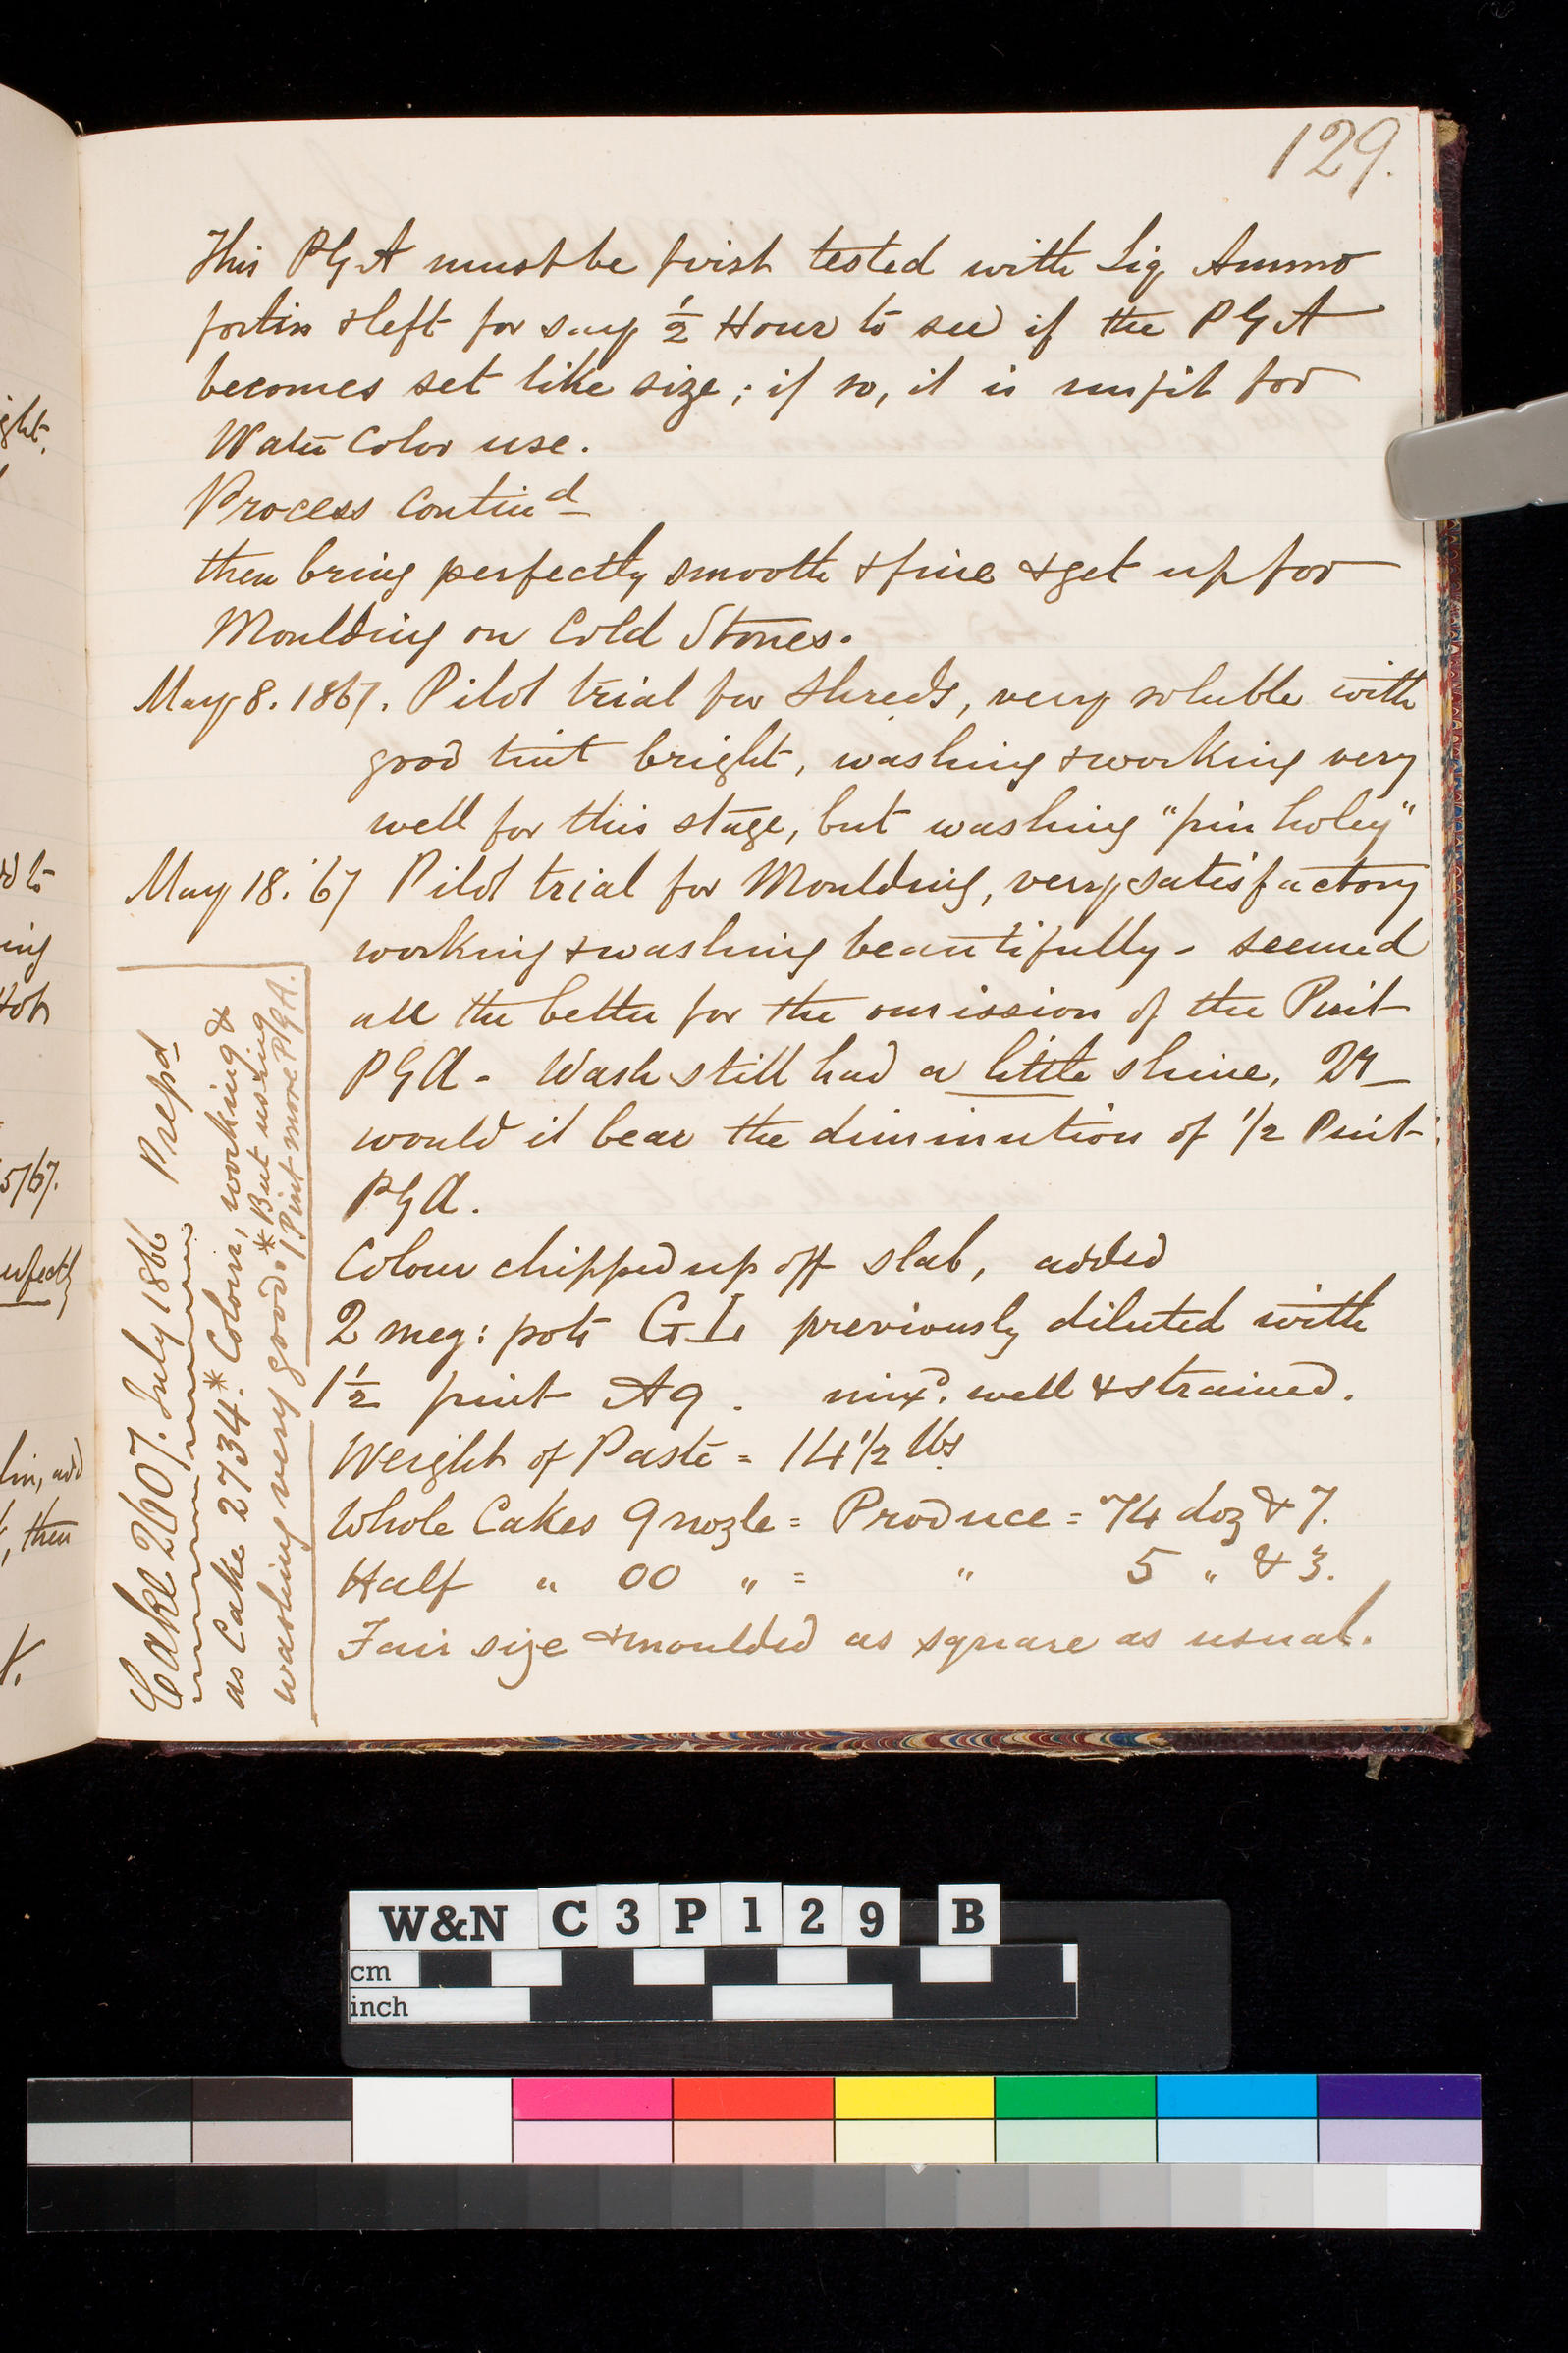 129.
This PGA must be first tested with Liq Ammo
fortiss & left for say ½ Hour to see if the PGA
becomes set like size; if so, it is unfit for
Water Color use.
Process Contind
then bring perfectly smooth & fine & get up for
Moulding on Cold Stones.
May 8. 1867. Pilot trial for Shreds, very soluble with
good tint bright, washing & working very
well for this stage, but washing "pin holey"
May 18. '67 Pilot trial for Moulding, very satisfactory
working & washing beautifully - seemed
all the better for the omission of the Pint
PGA - Wash still had a little shine, Qr
would it bear the diminution of 1/2 Pint
PGA.
Colour chipped up off slab, added
2 meg: pots GL previously diluted with
1½ pint Aq. mixd. well & strained.
Weight of Paste = 14 1/2 lbs
Whole Cakes 9 nozle = Produce = 74 doz & 7.
Half " 00 " = " 5 " & 3.
Fair size & moulded as square as usual.
Cake 2607. July 1866 Prepd
as Cake 2734.* Colour, working &
washing very good. * But using
1 Pint more PGA.
ght.
dd to
ing
Hot
5/67.
lin, add
, then
W&N C3P129 B
cm
inch